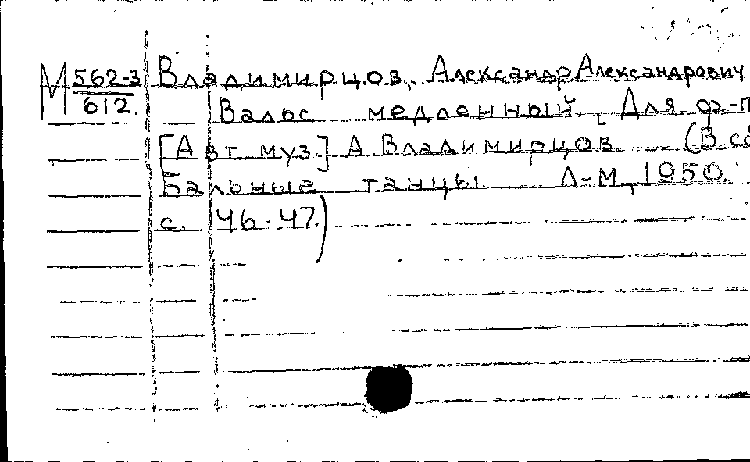 М 562-3 Владимирцов, Александр Александрович
612. Вальс медленный. Для ф-п
[Авт. муз] А. Владимирцов (В сб
Бальные танцы. Л-М, 1950.
с. 46-47.)